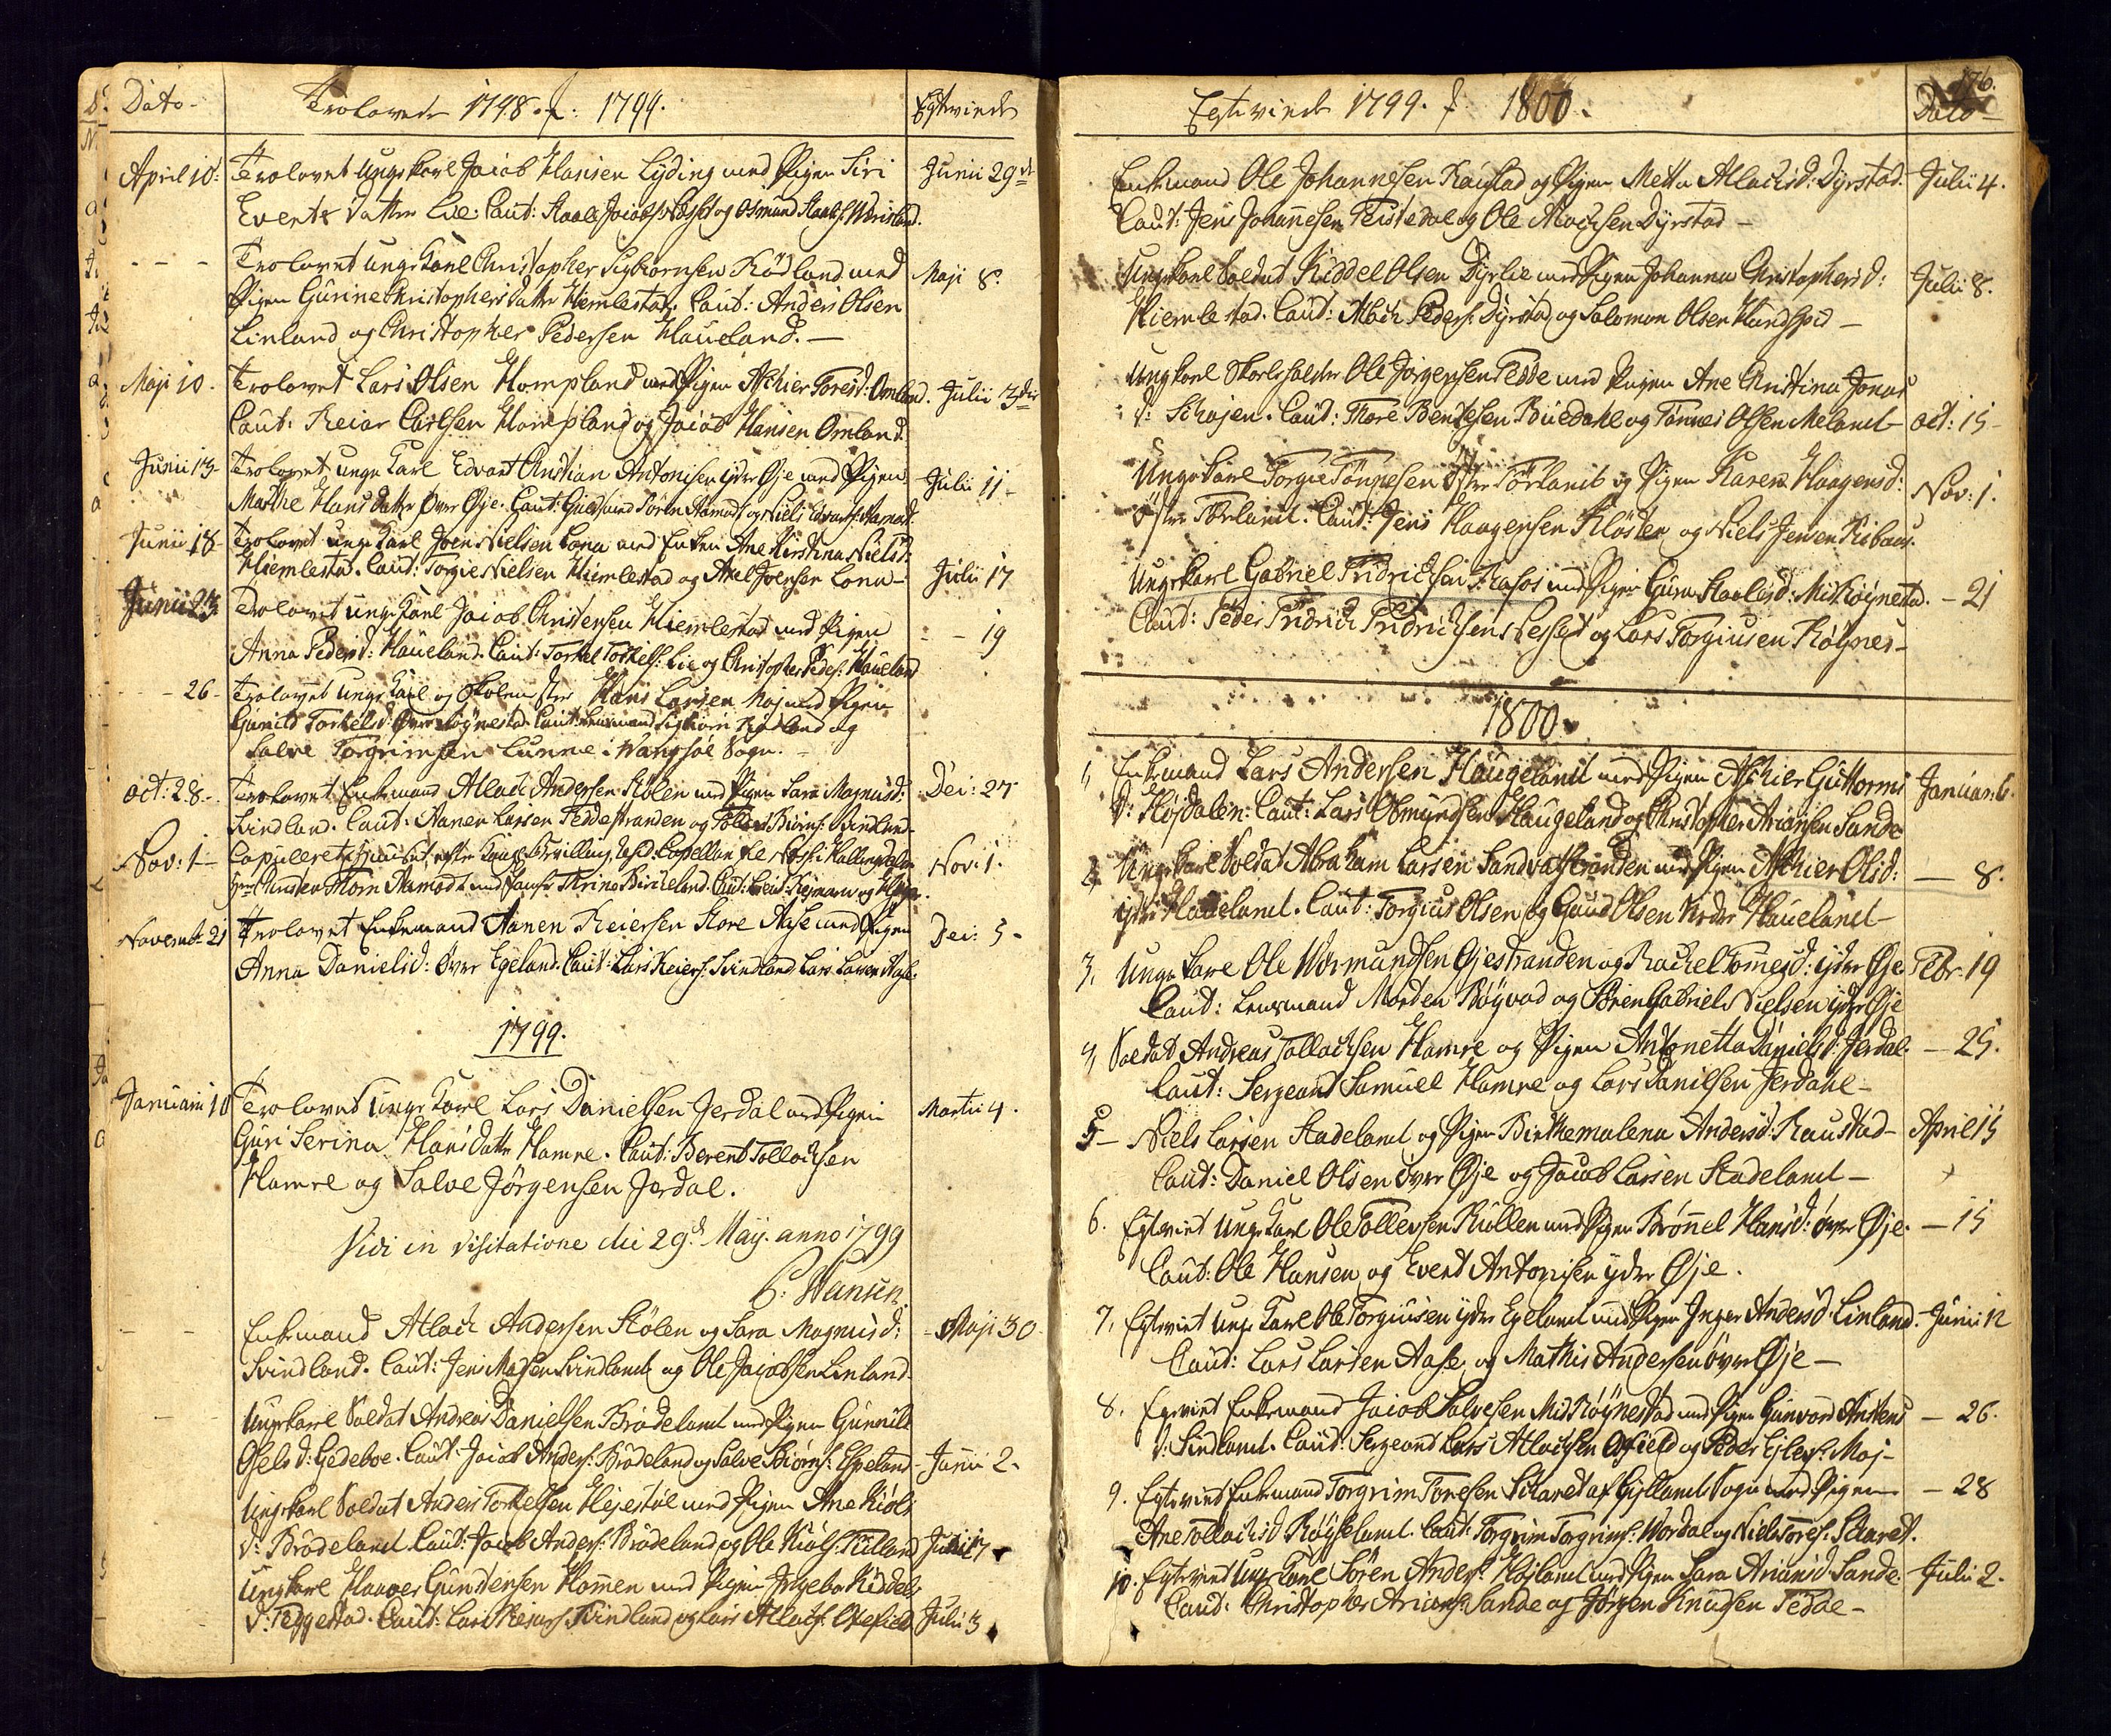 Dato - Trolovede 1798. f: 1799. Egtviede
April 10: Trolovet Ungekarl Jacob Hansen Lyding med Pigen Siri Junii 29de
Everts datter Lie. Caut: Staale Jacobs: og Osmund Staales:
- - - Trolovet unge Karl Christopher Sigbiornsen Rødland med Maji 8.
Pigen Gurine Christophersdatter Hiemlestad. Caut: Anders Olsen
Linland og Christopher Pedersen Haueland. -
Maji 10. Trolovet Lars Olsen Hompland med Pigen Aschier Toresd: Omland. Julii 3die
Caut: Reiar Carlsen Hompland og Jacob Hansen Omland.
Junii 13 - Trolovet unge Karl Edvart Christian Antonisen ydre Øje med Pigen Julii 11 -
Marthe Hansdatter Over Øje. Caut: Søren Aamodt og Niels Edvarts: Aamodt.
Junii 18 - Trolovet unge Karl Joen Nielsen Lona med Enken Ane Kirstina Nielsd:
Hiemlestad. Caut: Torgie Nielsen Hiemlestad og Axel Joensen Lona - Julii 17
Junii 23 Trolovet unge Karl Jacob Christensen Hiemlestad med Pigen - - 19
Anna Pedersd: Haueland. Caut: Torkel Torkels: Lie og Christopher Peders: Haueland
- 26 - Trolovet unge Karl og Skolemester Hans Larsen Moj med Pigen
Gunild Torkelsd: Øvre Røynestad. Caut: Lensmand Sigbiørn Rødland og
Salve Torgrimsen Lunne i Wandsøe Sogn. -
Oct: 28. - Trolovet Enkemand Atlack Andersen Stølen med Pigen Sara Magnusd: Dec: 27
Svindland. Caut: Aanen Larsen Feddestranden og Tolles Biørns: Svindland
Nov: 1 - Copuleret i Huuset efter Kongl: Bevilling, Capellan til Hr. Thorn Aamodt med Jomfr Thrine Birkeland. Nov: 1.
Novembr 21 Trolovet Enkemand Aanen Reiersen Store Aase med Pigen Dec: 5 -
Anna Danielsd: Over Egeland. Caut: Lars Reiers: Svindland Lars Larsen Aase.
1799.
Januarii 10 Trolovet Unge Karl Lars Danielsen Jerdal med Pigen Martii 4.
Guri Serina Hansdatter Hamre. Caut: Berent Tollachsen
Hamre og Salve Jörgensen Jerdal.
Vidi in visitatione die 29de May. anno 1799
Hansen
- - Enkemand Atlack Andersen Stölen og Sara Magnusd: - Maji 30
Svindland. Caut: Jens Madsen Svindland og Ole Jacobsen Linland.
- - Ungekarl Soldat Andreas Danielsen Brådeland med Pigen Gunnild
Osels d: Gedeboe. Caut: Jacob Anders: Brådeland og Salve Biörns: Espeland - Junii 2.
Ungekarl Soldat Anders Torkelsen Hejestøl med Pigen Ane Kiöls
d: Brådeland. Caut: Jacob Anders: Brådeland og Ole Kiöls: Killand Junii 17
Ungekarl Haaver Gundersen Homen med Pigen Ingebor Kiddels
d: Teggestad. Caut: Lars Reiars: Svindland og Lars Atlacks: Oxefield Julii 3
176.
Egteviede 1799. f 1800. Dato
Enkemand Ole Johannesen Raustad og Pigen Metta Atlacksd: Dyrstad. Julii 4.
Caut: Jens Johannesen Teistedal og Ole Atlacksen Dyrstad -
Ungekarl Soldat Kiddel Olsen Dyrlie med Pigen Johanna Christophersd: Julii 8.
Hiemlestad. Caut: Atlack Peders: Dyrstad og Salomon Olsen Hundspid -
Ungkarl Skoleholder Ole Jörgensen Fedde med Pigen Ane Christina Jonas
d: Schojen. Caut: Thore Bentsen Buedahl og Tönnes Olsen Meland - Oct: 15 -
Ungekarl Torgie Tönnesen östre Förland og Pigen Karen Haagensd: Nov: 1.
östre Förland. Caut: Jens Haagensen Kloster og Niels Jensen
Ungekarl Gabriel Fridrichsen med Pigen Guro Staalesd: Mit Röynestad. - 21
Caut: Peder Fridrich Fridrichsen og Lars Torgiusen Röynes -
1800.
1, Enkemand Lars Andersen Haugeland med Pigen Aschier Guttorms Januar: 6.
d: Flosdalen: Caut: Lars Osmundsen Haugeland og Christopher Ariansen Sande
2 Ungekarl Soldat Abraham Larsen Sandvatstranden med Pigen Aschier Olsd: - 8.
ydre Haueland. Caut: Torgius Olsen og Gaud Olsen Nedre Haueland -
3, Unge Karl Ole Wormundsen Øjestranden og Rachel Tommesd: ydre Øje Febr: 19
Caut: Lensmand Morten Røyvad og Søren Gabriel Nielsen ydre Øje
4, Soldat Andreas Tollachsen Hamre og Pigen Antonetta Danielsd: Jerdal. - 25.
Caut: Sergeant Samuel Hamre og Lars Danilsen Jerdahl -
5 - Niels Larsen Stadeland og Pigen Birthemalena Andersd: Raustad - April 15
Caut: Daniel Olsen Over Øje og Jacob Larsen Stadeland -
6. Egteviet Unge Karl Ole Tollevsen Rullen med Pigen Brönnel Hansd: över Øje. - 15
Caut: Ole Hansen, og Evert Antonisen ydre Øje.
7, Egteviet Unge Karl Ole Torgiusen ydre Egeland med Pigen Inger Andersd: Linland. Junii 12
Caut: Lars Larsen Aase og Mathis Andersen över Øje -
8. Egteviet Enkemand Jacob Salvesen Mit Röynestad med Pigen Gunvor Antens - 26.
d: Sindland. Caut: Sergeant Lars Atlachsen Oxfield og Peder Ejlers: Moj -
9. Egteviet Enkemand Torgrim Toresen Skaret af Gyllands Sogn med Pigen - 28
Ane Tollachsd: Röyseland. Caut: Torgrim Torgrims: Wordal og Niels Tores: Skaret.
10. Egteviet Unge Karl Sören Anders: Højland med Pigen Sara Ariansd: Sande. Julii 2.
Caut: Christopher Arians: Sande og Jörgen Knudsen Fedde -